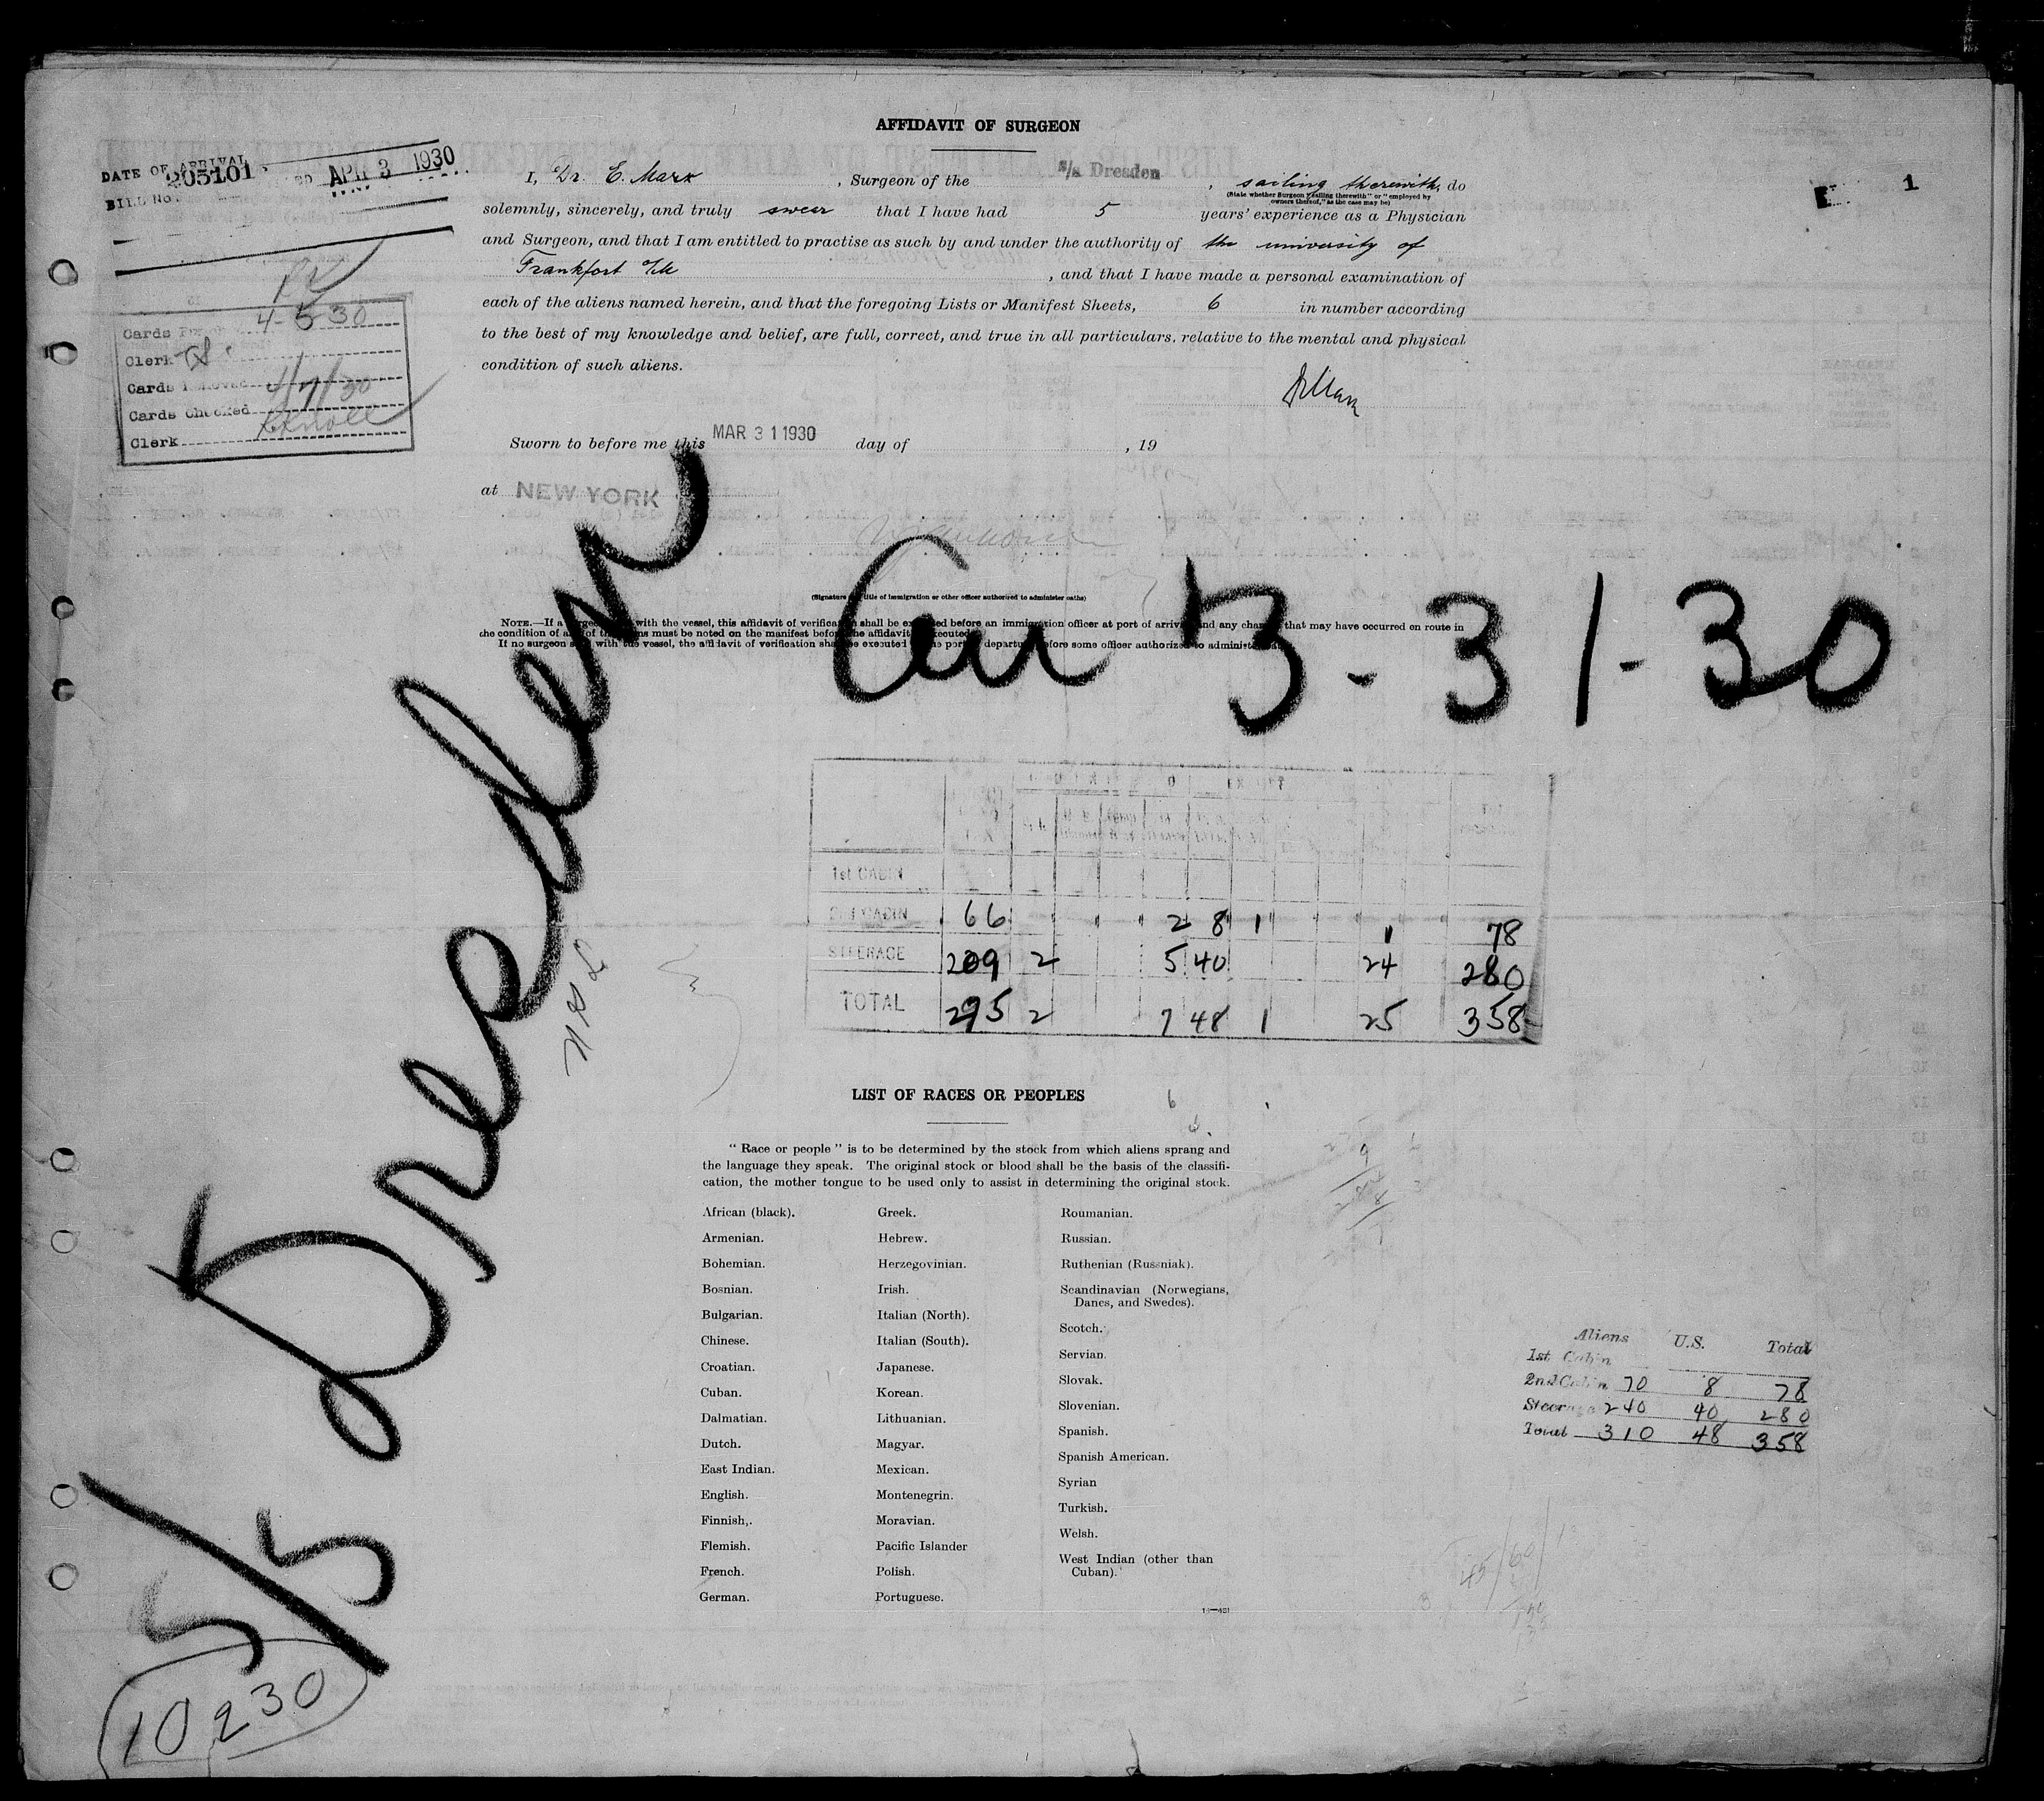 AFFIDAVIT OF SURGEON
DATE OF ARRIVAL APR 3 1930
BILL NO. 205101
1
I, Dr. E. Marx , Surgeon of the s/s Dresden , sailing therewith, do
(State whether Surgeon "sailing therewith" or "employed by
owners thereof," as the case may be)
solemnly, sincerely, and truly swear that I have had 5 years' experience as a Physician
and Surgeon, and that I am entitled to practise as such by and under the authority of the university of
Frankfort , and that I have made a personal examination of
each of the aliens named herein, and that the foregoing Lists or Manifest Sheets, 6 in number according
to the best of my knowledge and belief, are full, correct, and true in all particulars, relative to the mental and physical
condition of such aliens.
Cards 4-5 30
Clerk
Cards Removed 4/7/30
Cards Checked
Clerk
Sworn to before me this MAR 31 1930 day of , 19
at NEW YORK
(Signature title of immigration or other officer authorized to administer oaths)
NOTE.—If a with the vessel, this affidavit of verification shall be executed before an immigration officer at port of arrival and any change that may have occurred en route in
the condition of any of the aliens must be noted on the manifest before the affidavit executed
If no surgeon with the vessel, the affidavit of verification shall be executed port departure before some officer authorized to administer
3-31-30
SS Dresden
1st CABIN
2nd CABIN 66 2 8 1 1 78
STEERAGE 209 2 5 40 24 280
TOTAL 295 2 7 48 1 25 358
LIST OF RACES OR PEOPLES
"Race or people" is to be determined by the stock from which aliens sprang and
the language they speak. The original stock or blood shall be the basis of the classifi-
cation, the mother tongue to be used only to assist in determining the original stock.
African (black).
Armenian.
Bohemian.
Bosnian.
Bulgarian.
Chinese.
Croatian.
Cuban.
Dalmatian.
Dutch.
East Indian.
English.
Finnish,.
Flemish.
French.
German.
Greek.
Hebrew.
Herzegovinian.
Irish.
Italian (North).
Italian (South).
Japanese.
Korean.
Lithuanian.
Magyar.
Mexican.
Montenegrin.
Moravian.
Pacific Islander
Polish.
Portuguese.
Roumanian.
Russian.
Ruthenian (Russniak).
Scandinavian (Norwegians,
Danes, and Swedes).
Scotch.
Servian.
Slovak.
Slovenian.
Spanish.
Spanish American.
Syrian
Turkish.
Welsh.
West Indian (other than
Cuban).
Aliens U.S. Total
1st Cabin
2nd Cabin 70 8 78
Steerage 240 40 280
Total 310 48 358
10 230